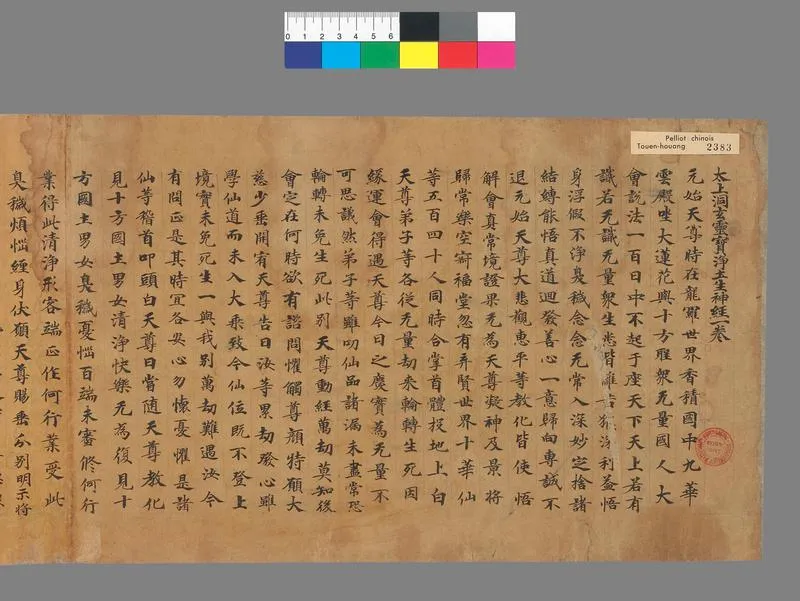 太上洞玄靈寶淨土生神經一卷
元始天尊時在龍羅世界香積國中九華
雲殿坐大蓮花與十方聖衆无量國人大
會說法一百日中不起于座天下天上若有
識若无識无量衆生悉皆離苦獲深利益悟
身浮假不淨臭穢念念无常入深妙定捨諸
結縛能悟真道迴發善心一意歸向專誠不
退元始天尊大悲觀惠平等教化皆使悟
解會真常境證果无為天尊凝神及景將
歸常樂空寂福堂忽有弄賢世界十華仙
等五百四十人同時合掌首體投地上白
天尊弟子等各從无量劫來輪轉生死因
緣運會得遇天尊今日之慶實為无量不
可思議然弟子等雖叨仙品諸漏未盡常恐
輪轉未免生死此別天尊動經萬劫莫知後
會定在何時欲有諮問懼觸尊顏特願大
慈少垂開宥天尊告曰汝等累劫發心雖
學仙道而未入大乘致令仙位既不登上
境實未免死生一與我別萬劫難遇汝今
有問正是其時宜各安心勿懷憂懼是諸
仙等稽首叩頭白天尊曰當隨天尊教化
見十方國土男女清淨快樂无為復見十
方國土男女臭穢憂惱百端未審修何行
業得此清淨形容端正作何行業受此
臭穢煩惱纏身伏願天尊賜垂分別明示將
Pelliot chinois
Touen-houang 2383
0 1 2 3 4 5 6